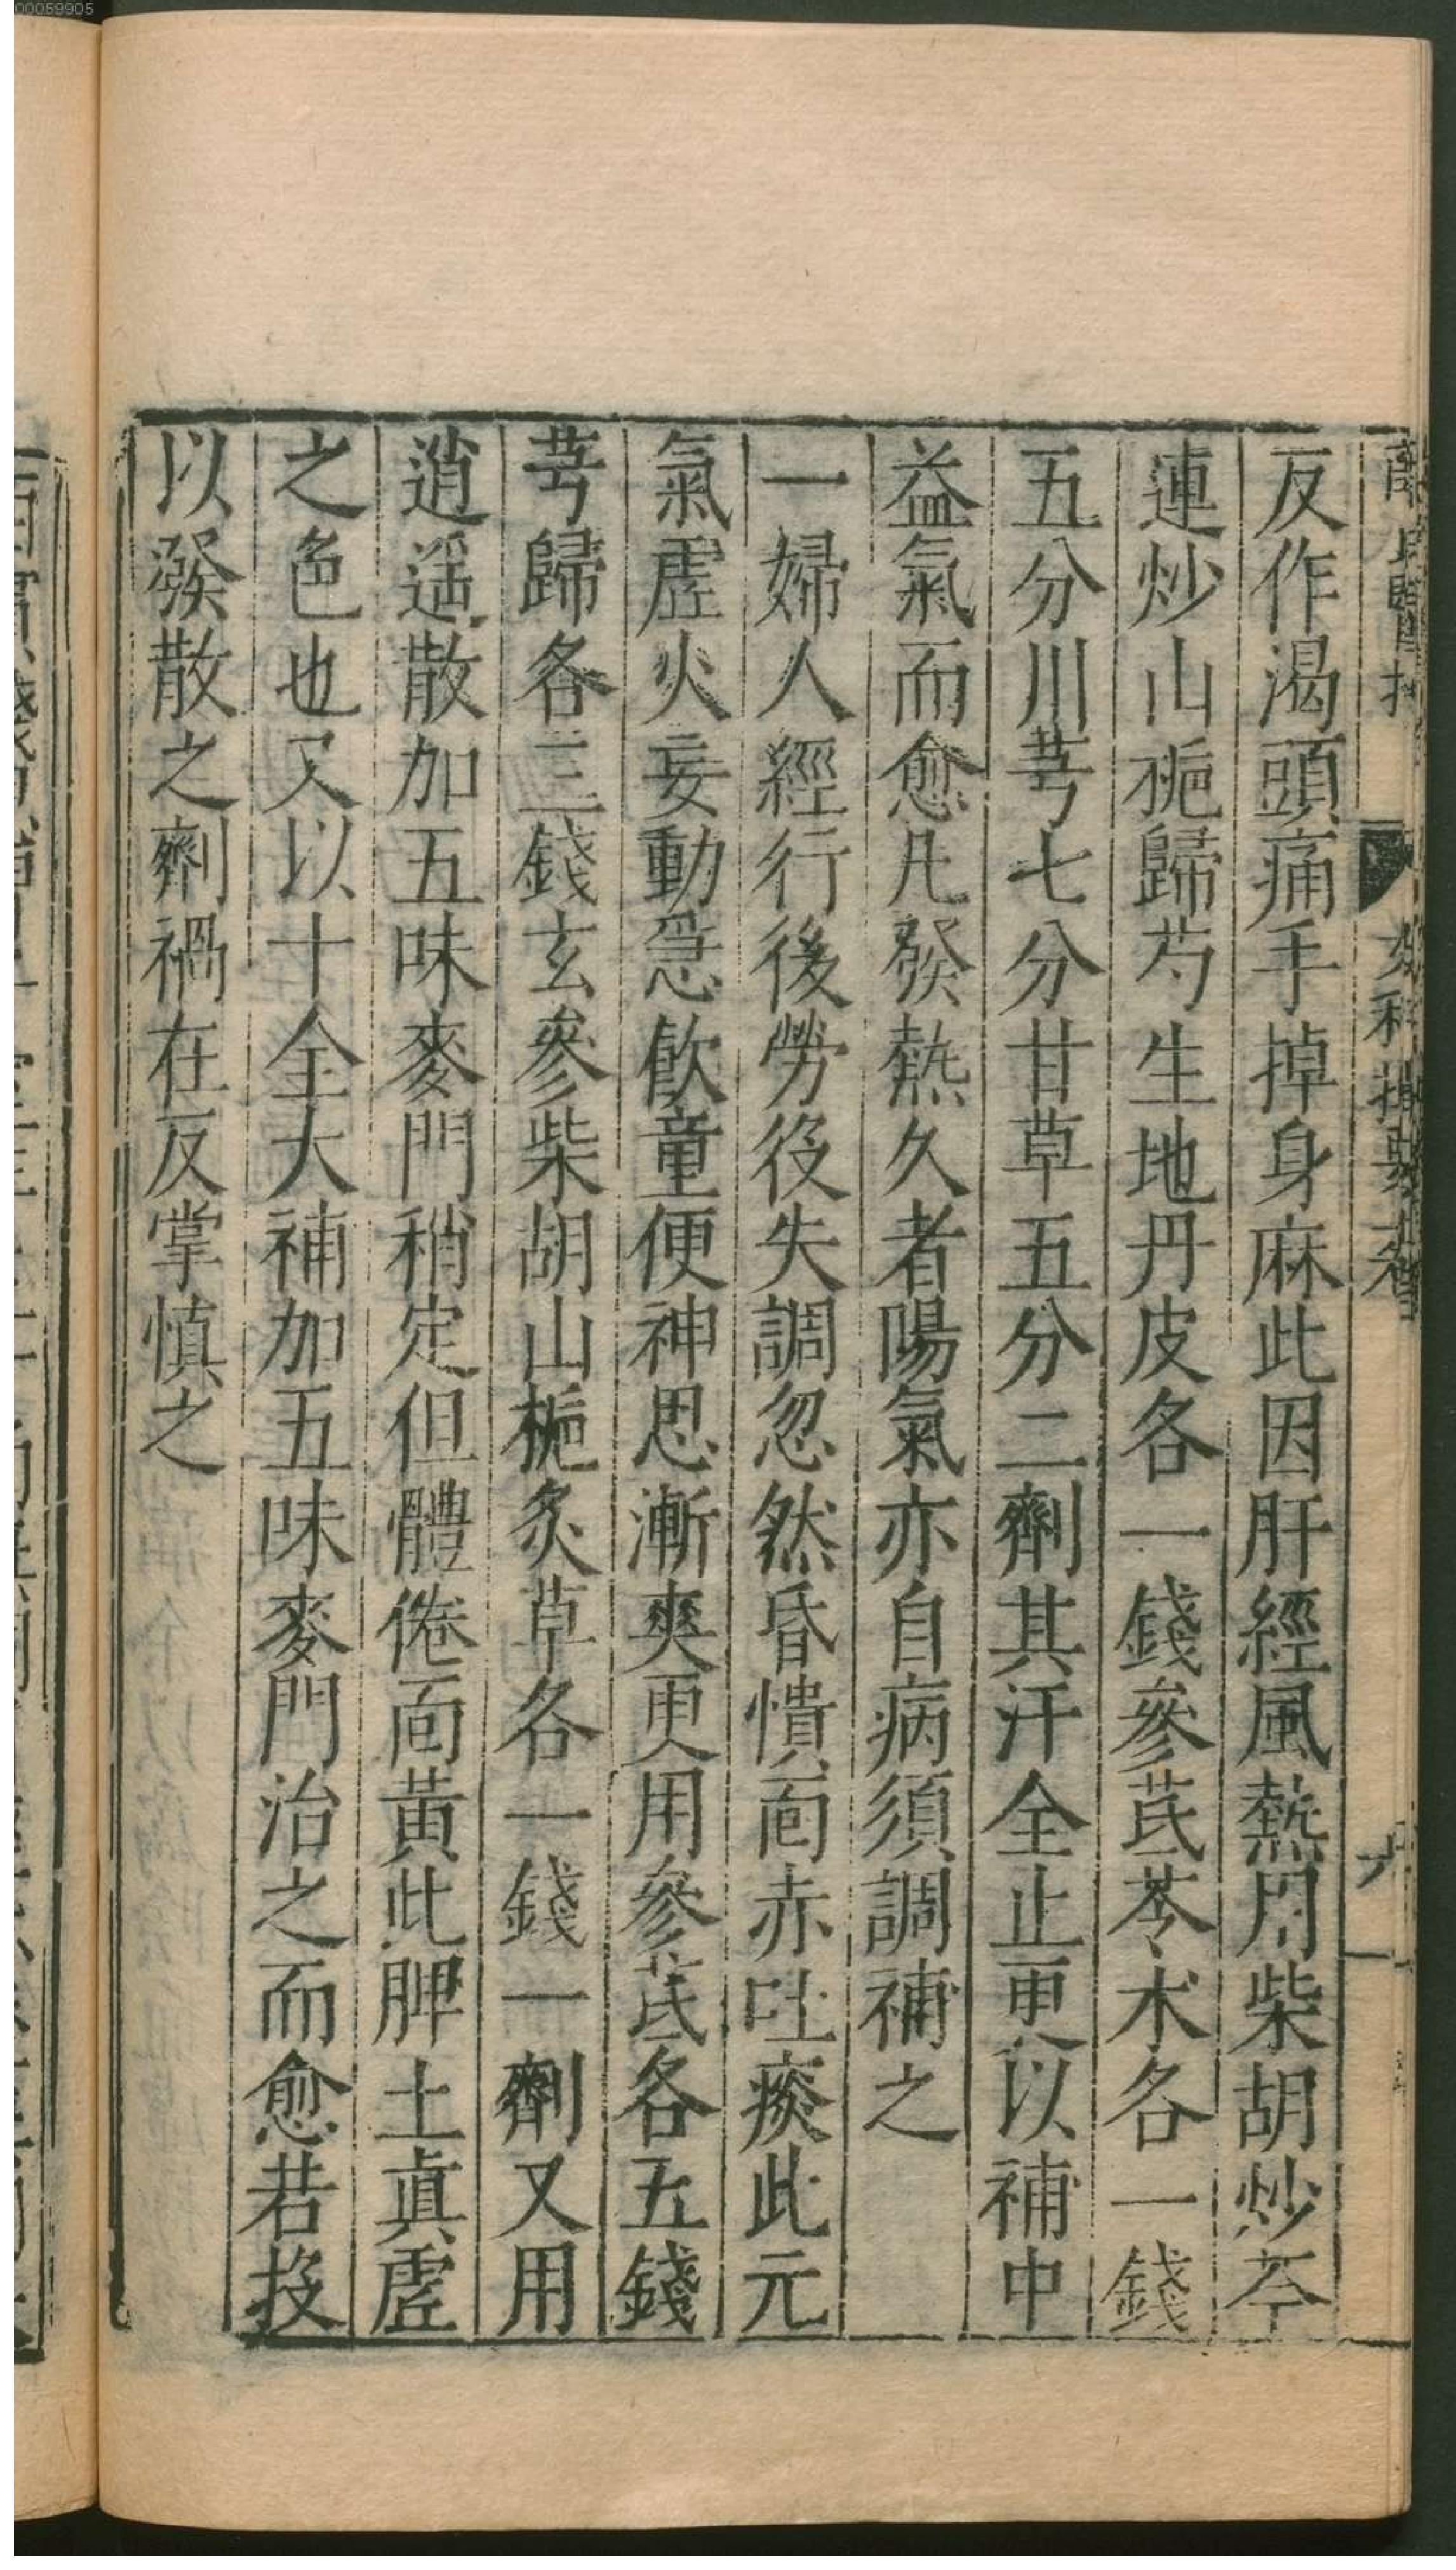 00059905
反作渴頭痛手掉身麻此因肝經風熱用柴胡炒芩
連炒山梔歸芍生地丹皮各一錢參芪苓术各一錢
五分川芎七分甘草五分二劑其汗全止更以補中
益氣而愈凡發熱久者陽氣亦自病須調補之
一婦人經行後勞役失調忽然昏憒面赤吐痰此元
氣虛火妄動急飲童便神思漸爽更用參芪各五錢
芎歸各三錢玄參柴胡山梔炙草各一錢一劑又用
逍遥散加五味麥門稍定但體倦面黃此脾土真虛
之色也又以十全大補加五味麥門治之而愈若投
以發散之劑禍在反掌慎之